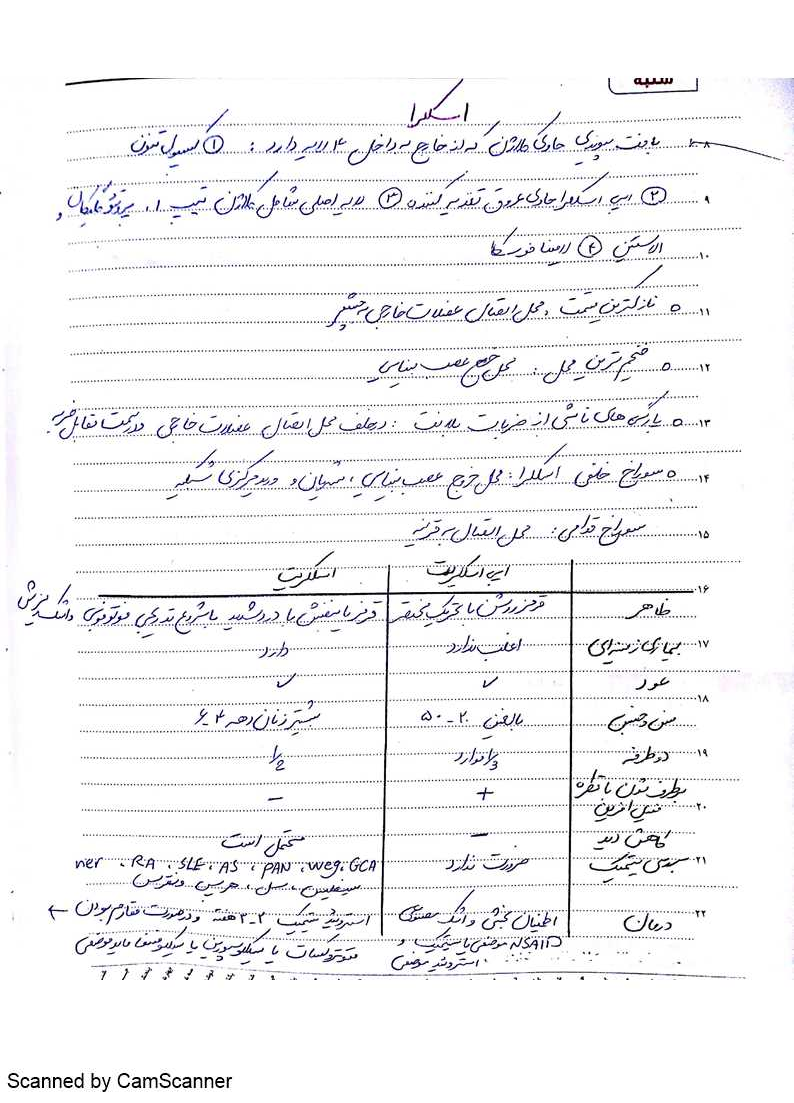 شنبه
اسکلرا
۸ بافت پیوندی حاوی کلاژن که از خارج به داخل ۴ لایه دارد : ① کپسول تنون
۹ ② اپی اسکلرا حاوی عروق تغذیه کننده ③ لایه اصلی شامل کلاژن تیپ ۱، پروتئوگلیکان و
۱۰ الاستین ④ لامینا فوسکا
۱۱ o نازکترین قسمت، محل اتصال عضلات خارجی به چشم
۱۲ o ضخیم ترین محل : محل خروج عصب بینایی
۱۳ o پارگی های ناشی از ضربات بلانت : در خلف محل اتصال عضلات خارجی در سمت مقابل ضربه
۱۴ o سوراخ خلفی اسکلرا : محل خروج عصب بینایی، شریان و ورید مرکزی شبکیه
۱۵ سوراخ قدامی : محل اتصال به قرنیه
۱۶ اپی اسکلریت اسکلریت
ظاهر قرمز روشن با تحریک مختصر قرمز یا بنفش با درد شدید با شروع تدریجی فوتوفوبی و اشک ریزش
۱۷ بیماری زمینه ای اغلب ندارد دارد
عود ✓ ✓
۱۸ سن و جنس بالغین ۲۰-۵۰ بیشتر زنان دهه ۴-۶
۱۹ دو طرفه ۱/۳ موارد ۱/۲
برطرف شدن با قطره + −
۲۰ فنیل افرین
کاهش دید − محتمل است
۲۱ بررسی سیستمیک ضرورت ندارد RA، SLE، AS، PAN، weg، GCA
سیفلیس، سل، هرپس و نقرس
۲۲ درمان اطمینان بخشی و اشک مصنوعی استروئید سیستمیک ۲-۳ هفته و در صورت مقاوم بودن ←
NSAID موضعی یا سیستمیک و متوترکسات یا سیکلوسپورین یا سیکلوفسفاماید موضعی
استروئید موضعی
Scanned by CamScanner